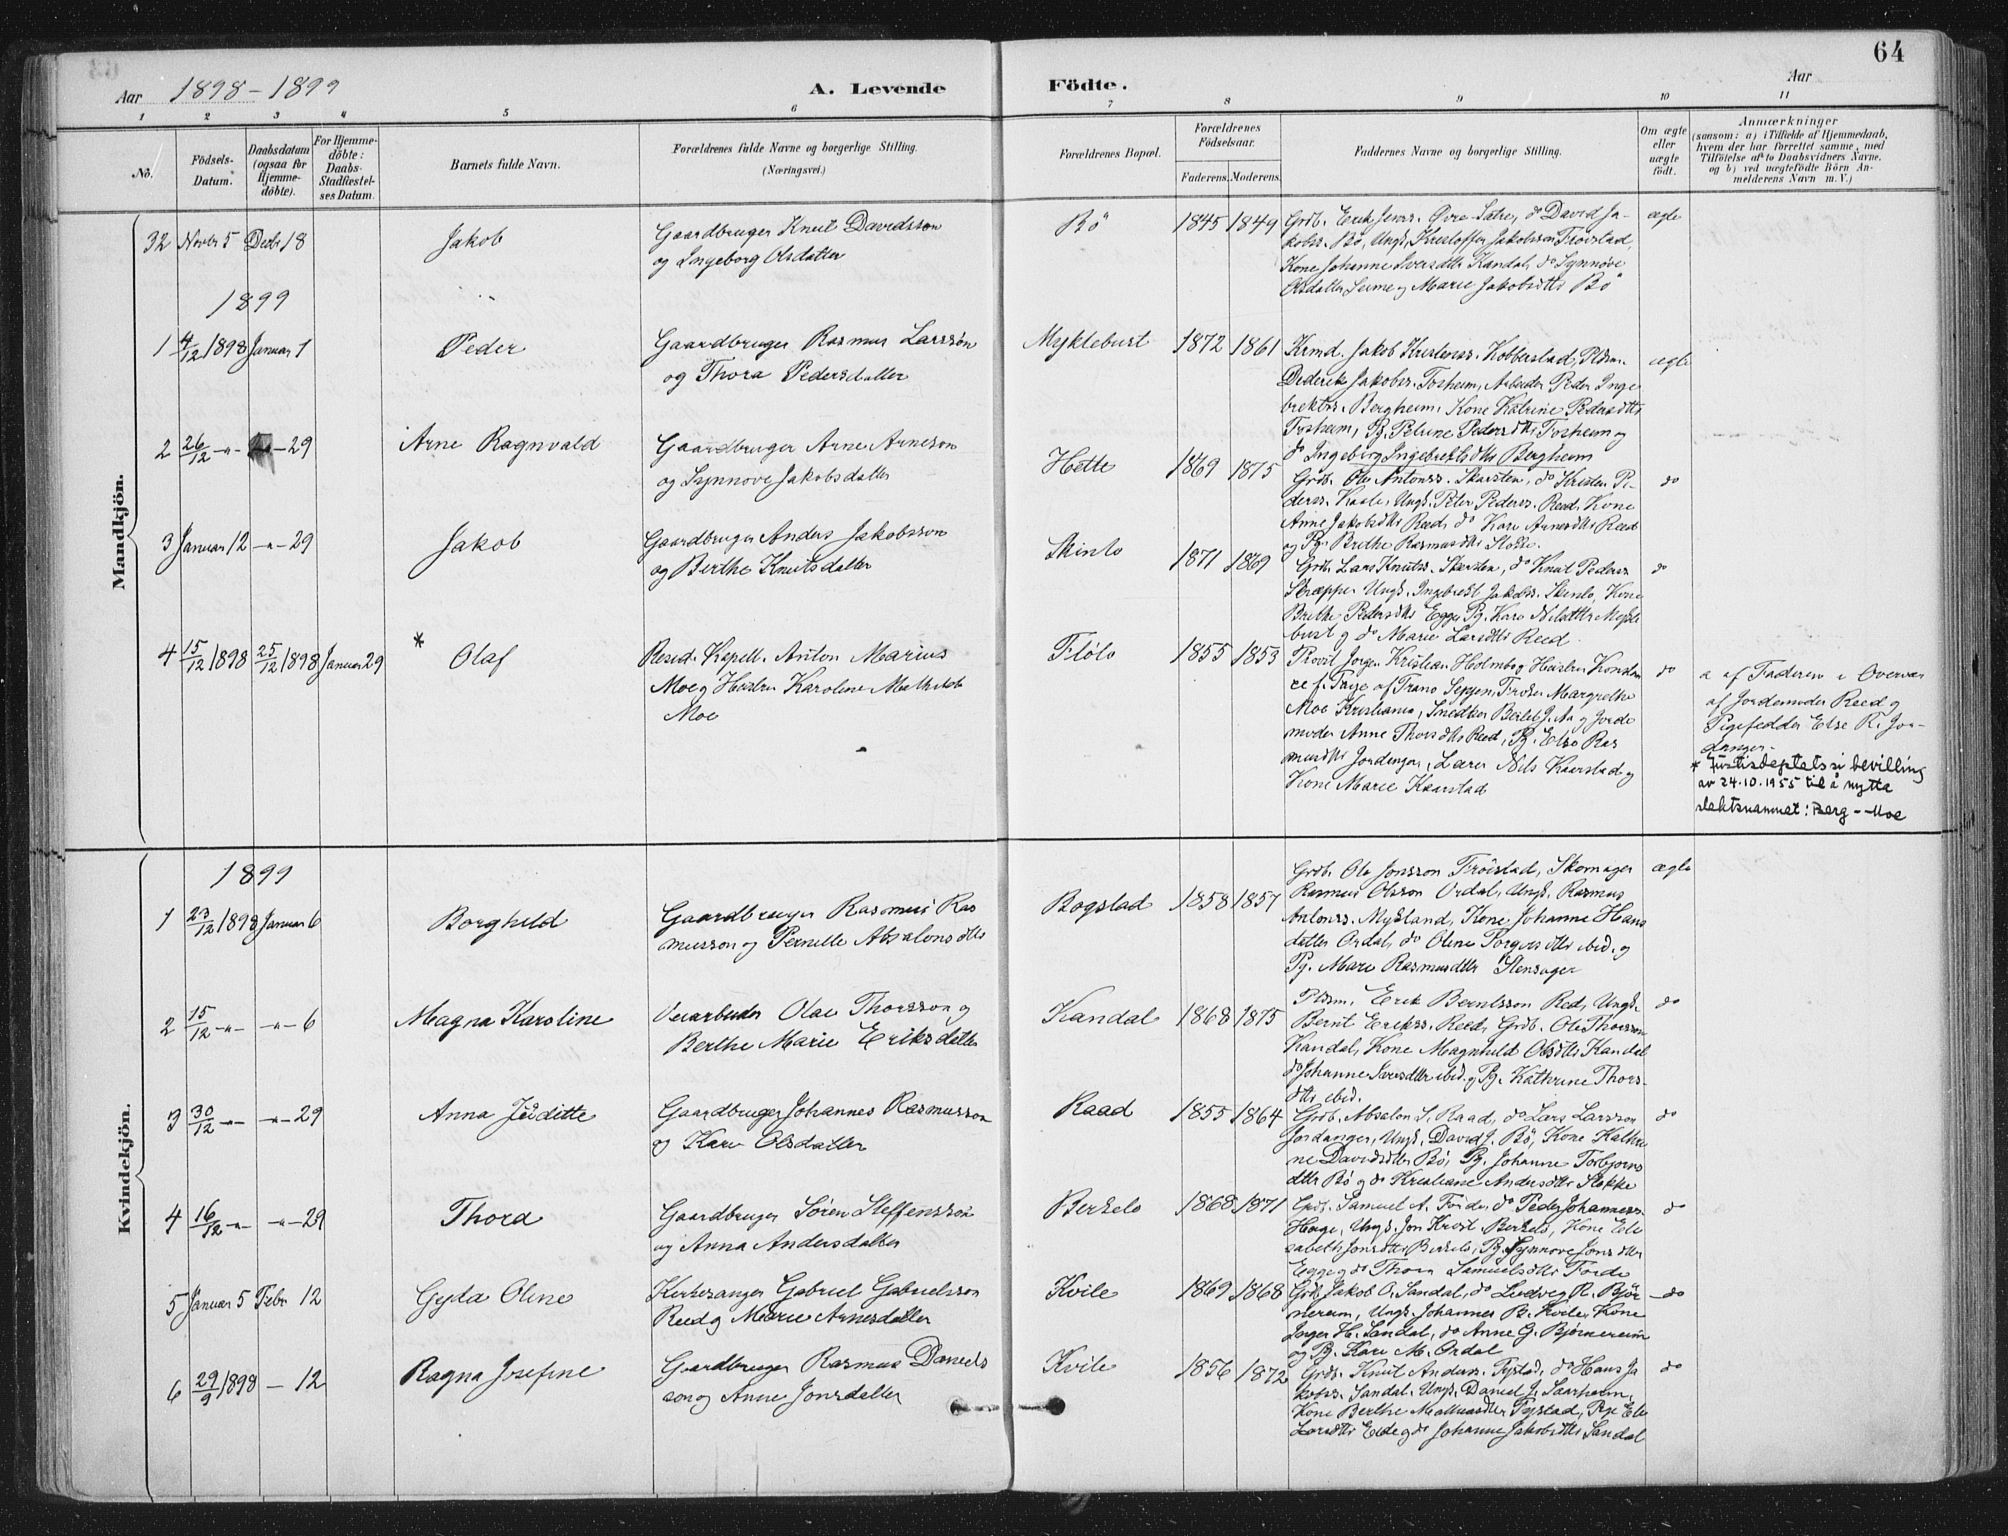 64
Aar 1898-1899
A. Levende Födte.
Aar
1 2 3 4 5 6 7 8 9 10 11
No.
Födsels-Datum.
Daabsdatum (ogsaa for Hjemme-döbte).
For Hjemme-döbte: Daabs-Stadfæstel-ses Datum.
Barnets fulde Navn.
Forældrenes fulde Navne og borgerlige Stilling.
(Næringsvei.)
Forældrenes Bopæl.
Forældrenes Födselsaar.
Faderens. Moderens.
Faddernes Navne og borgerlige Stilling.
Om ægte eller uægte födt.
Anmærkninger
(saasom: a) i Tilfælde af Hjemmedaab,
hvem der har forrettet samme, med
Tilföielse af to Daabsvidners Navne,
og b) ved uægtefödte Börn An-
melderens Navn m. V.)
Mandkjön.
32 Novbr 5 Decbr 18 Jakob
Gaardbruger Knut Davidsson
og Ingeborg Olsdatter
Bö 1845 1849
Grdb. Erik Jenss. Øvre-Sætre, do David Ja-
kobss. Bö, Ungk. Kristoffer Jakobsson Tröistad,
Kone Johanne Iversdtter Kandal, do Synnöve
Olsdatter Seime og Marie Jakobsdtter Bö
ægte
1899
1 4/12 1898 Januar 1 Peder
Gaardbruger Rasmus Larssön
og Thora Pedersdatter
Myklebust 1872 1861
Krmd. Jakob Kristenss. Kobberstad, Pldsm.
Diderik Jakobss. Tosheim, Arbeider Peder Inge
brektss. Bergheim, Kone Katrine Pedersdtter
Tosheim, Pg. Petrine Pedersdtter Tosheim og
do Ingeborg Ingebrektsdtter Bergheim
ægte
2 26/12 -"- -29 Arne Ragnvald
Gaardbruger Arne Arneson
og Synnove Jakobsdatter
Hette 1869 1875
Grdb. Ole Antonss. Skarsten, do Kristen Pe-
derss. Kaale, Ungk. Peter Pederss. Reed, Kone
Anne Jakobsdtter Reed, do Kari Arnesdtter Reed
og Pg. Brithe Rasmusdtter
do
3 Januar 12 -"- 29 Jakob
Gaardbruger Anders Jakobsson
og Berthe Knutsdatter
Skinlo 1871 1869
Grdb. Lars Knutss. Skarsten, do Knut Pederss
Ungk. Ingebrekt Jakobss. Skinlo, Kone
Brithe Pedersdtter Egge, Pg. Kari Nilsdtter Mykle
bust og do Marie Larsdtter Reed.
do
4 15/12 1898 25/12 1898 Januar 29 * Olaf
Resid. Kapell. Anton Marius
Moe og Hustru Karoline Mathilde
Moe
Flölo 1855 1853
Provst Jørgen Kristian Holmbog Hustru Konstan
Margrethe
Moe Kristiania, J. Aa og Jorde
moder Anne Thorsdtter Reed, Pg. Else Ras
musdtter Jordanger, Lærer Nils Kaarstad og
Kone Marie Kaarstad
do
a af Faderen i Overvær
af Jordemoder Reed og
Pigefadder Else R. Jor-
danger.
* Justisdeptets bevilling
av 24.10.1955 til å nytta
slektsnamnet: Berg-Moe
Kvindekjön.
1899
1 23/12 1898 Januar 6 Borghild
Gaardbruger Rasmus Ras
musson og Pernille Absalonsdtter
Bogstad 1858 1857
Grdb. Ole Jonsson Tröistad, Skomager
Rasmus Olsson Ordal, Ungk. Rasmus
Antonss. Mykland, Kone Johanne Hans
datter Ordal, do Oline Torgersdtter ibid. og
Pg. Mari Rasmusdtter Stensager
ægte
2 15/12 -"- -"- 6 Magna Karoline
Veiarbeider Olai Thorsson og
Berthe Marie Eriksdatter
Kandal 1868 1875
Pldsm. Erik Berntsson Red, Ungk.
Bernt Erikss. Reed, Grdb. Ole Thorsson
Kandal, Kone Magnhild Olsdtter Kandal
do Johanne Iversdtter ibid. og Pg. Kathrine Thors-
dtter ibid.
do
3 30/12 -"- -"- 29 Anna Juditte
Gaardbruger Johannes Rasmusson
og Kari Olsdatter
Raad 1855 1864
Grdb. Absalon S. Raad, do Lars Larsson
Jordanger, Ungk. David J. Bö, Kone Kathri
ne Davidsdtter Bö, Pg. Johanne Torbjorns
dtter Bö og do Kristiane Andersdtter Stokke
do
4 16/12 -"- -"- 29 Thora
Gaardbruger Sören Steffensson
og Anna Andersdatter
Berkelo 1868 1871
Grdb. Samuel A. Förde, do Peder Johanness.
Hauge, Ungk. Jon Krost. Berkelo, Kone Eli
sabeth Jonsdtter Berkelo, Pg. Synnove Jonsdtter
Egge og do Thora Samuelsdtter Förde
do
5 Januar 5 Febr 12 Gyda Oline
Kirkesanger Gabriel Gabrielsson
Reed og Marie Arnesdatter
Kvile 1869 1868
Grdb. Jakob O. Sandal, do Ludvig R. Björ-
nereim, Ungk. Johannes B. Kvile, Kone
Inger H. Sandal, do Anne G. Bjørnereim
og Pg. Kari M. Ordal
do
6 29/9 1898 - 12 Ragna Josefine
Gaardbruger Rasmus Daniels
son og Anne Jonsdatter
Kvile 1856 1872
Grdb. Knut Anderss. Fystad, do Hans Ja
kobss. Sandal, Ungk. Daniel J. Saarheim,
Kone Berthe Mathiasdtter Fystad, Pige Eli
Larsdtter Eide og do Johanne Jakobsdtter Sandal
do